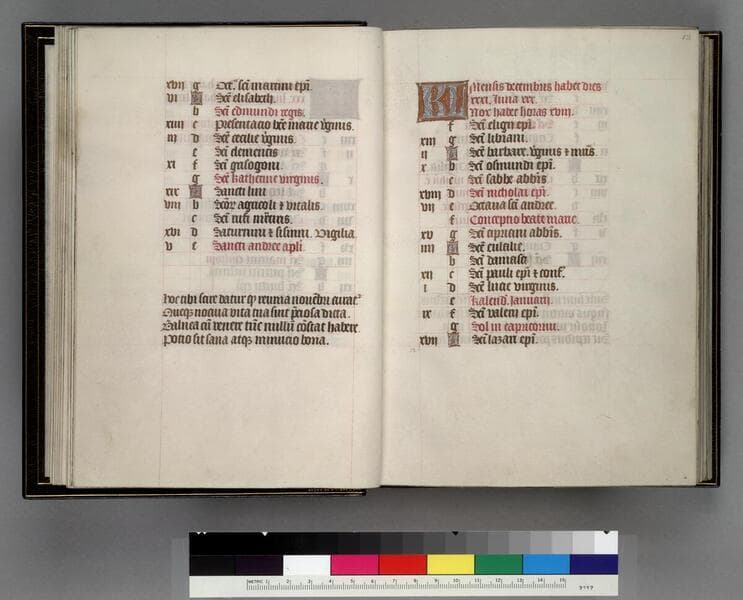 xvii g Oct.ͣ Scī martini epī.
vi A Scē elisabeth.
b Scī edmundi regis.
xiiii c Presentacio bēe marie v̄ginis.
iii d Scē cecilie v̄ginis.
e Scī clementis
xi f Scī grisogoni.
g Scē katherine virginis.
xix A Sancti lini
viii b Scōr agricoli ⁊ vitalis.
c Scī rufi m̄ris.
xvi d Saturnini ⁊ sisinni. Vigilia
v e Sancti andree apłi
Hoc tibi scire datur q̄ reuma nouēbri curat.ͬ
Queq; nociua vita tua sint p̄ciosa dicta.
Balnea cū venere tūc nullū cōstat habere
Potio sit sana atq; minucio bona.
KL Mensis decembris habet dies
xxxi. luna xxx.
Nox habet horas xviii.
f Scī eligii epī.
xiii g Scē libiani.
ii A Scē barbare. v̄ginis ⁊ m̄ris.
x b Scī osmundi epī.
c Scī sabbe abbīs.
xviii d Scī nicholai epī.
vii e Octaua scī andree.
f Conceptio beate marie.
xv g Scī cipriani abbīs.
iiii A Scē eulalie.
b Scī damasci
xii c Scī pauli epī ⁊ conf.
i d Scē lucie virginis.
e Kalend. Januarii.
ix f Scī valerii epī.
g Sol in capricornu.
xvii A Scī lazari epī.